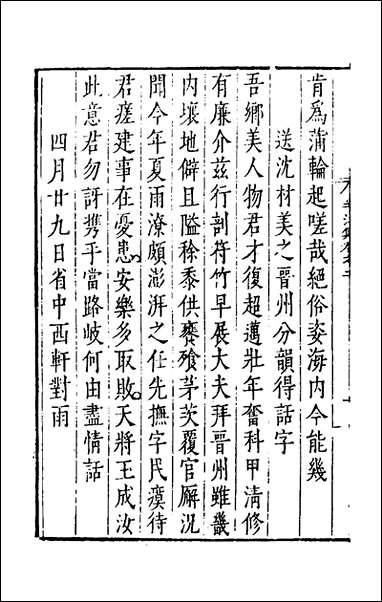 肯為蒲輪起嗟哉絕俗姿海內今能幾
送沈材美之晉州分韻得話字
吾鄉美人物君才復超邁壯年奮科甲清修
有廉介茲行剖符竹早展大夫拜晉州雖畿
內壤地僻且隘稌黍供饔飱茅茨覆官廨況
聞今年夏雨潦頗澎湃之任先撫字民瘼待
君瘥建事在憂患安樂多取敗天將王成汝
此意君勿訝携手當路岐何由盡情話
四月廿九日省中西軒對雨